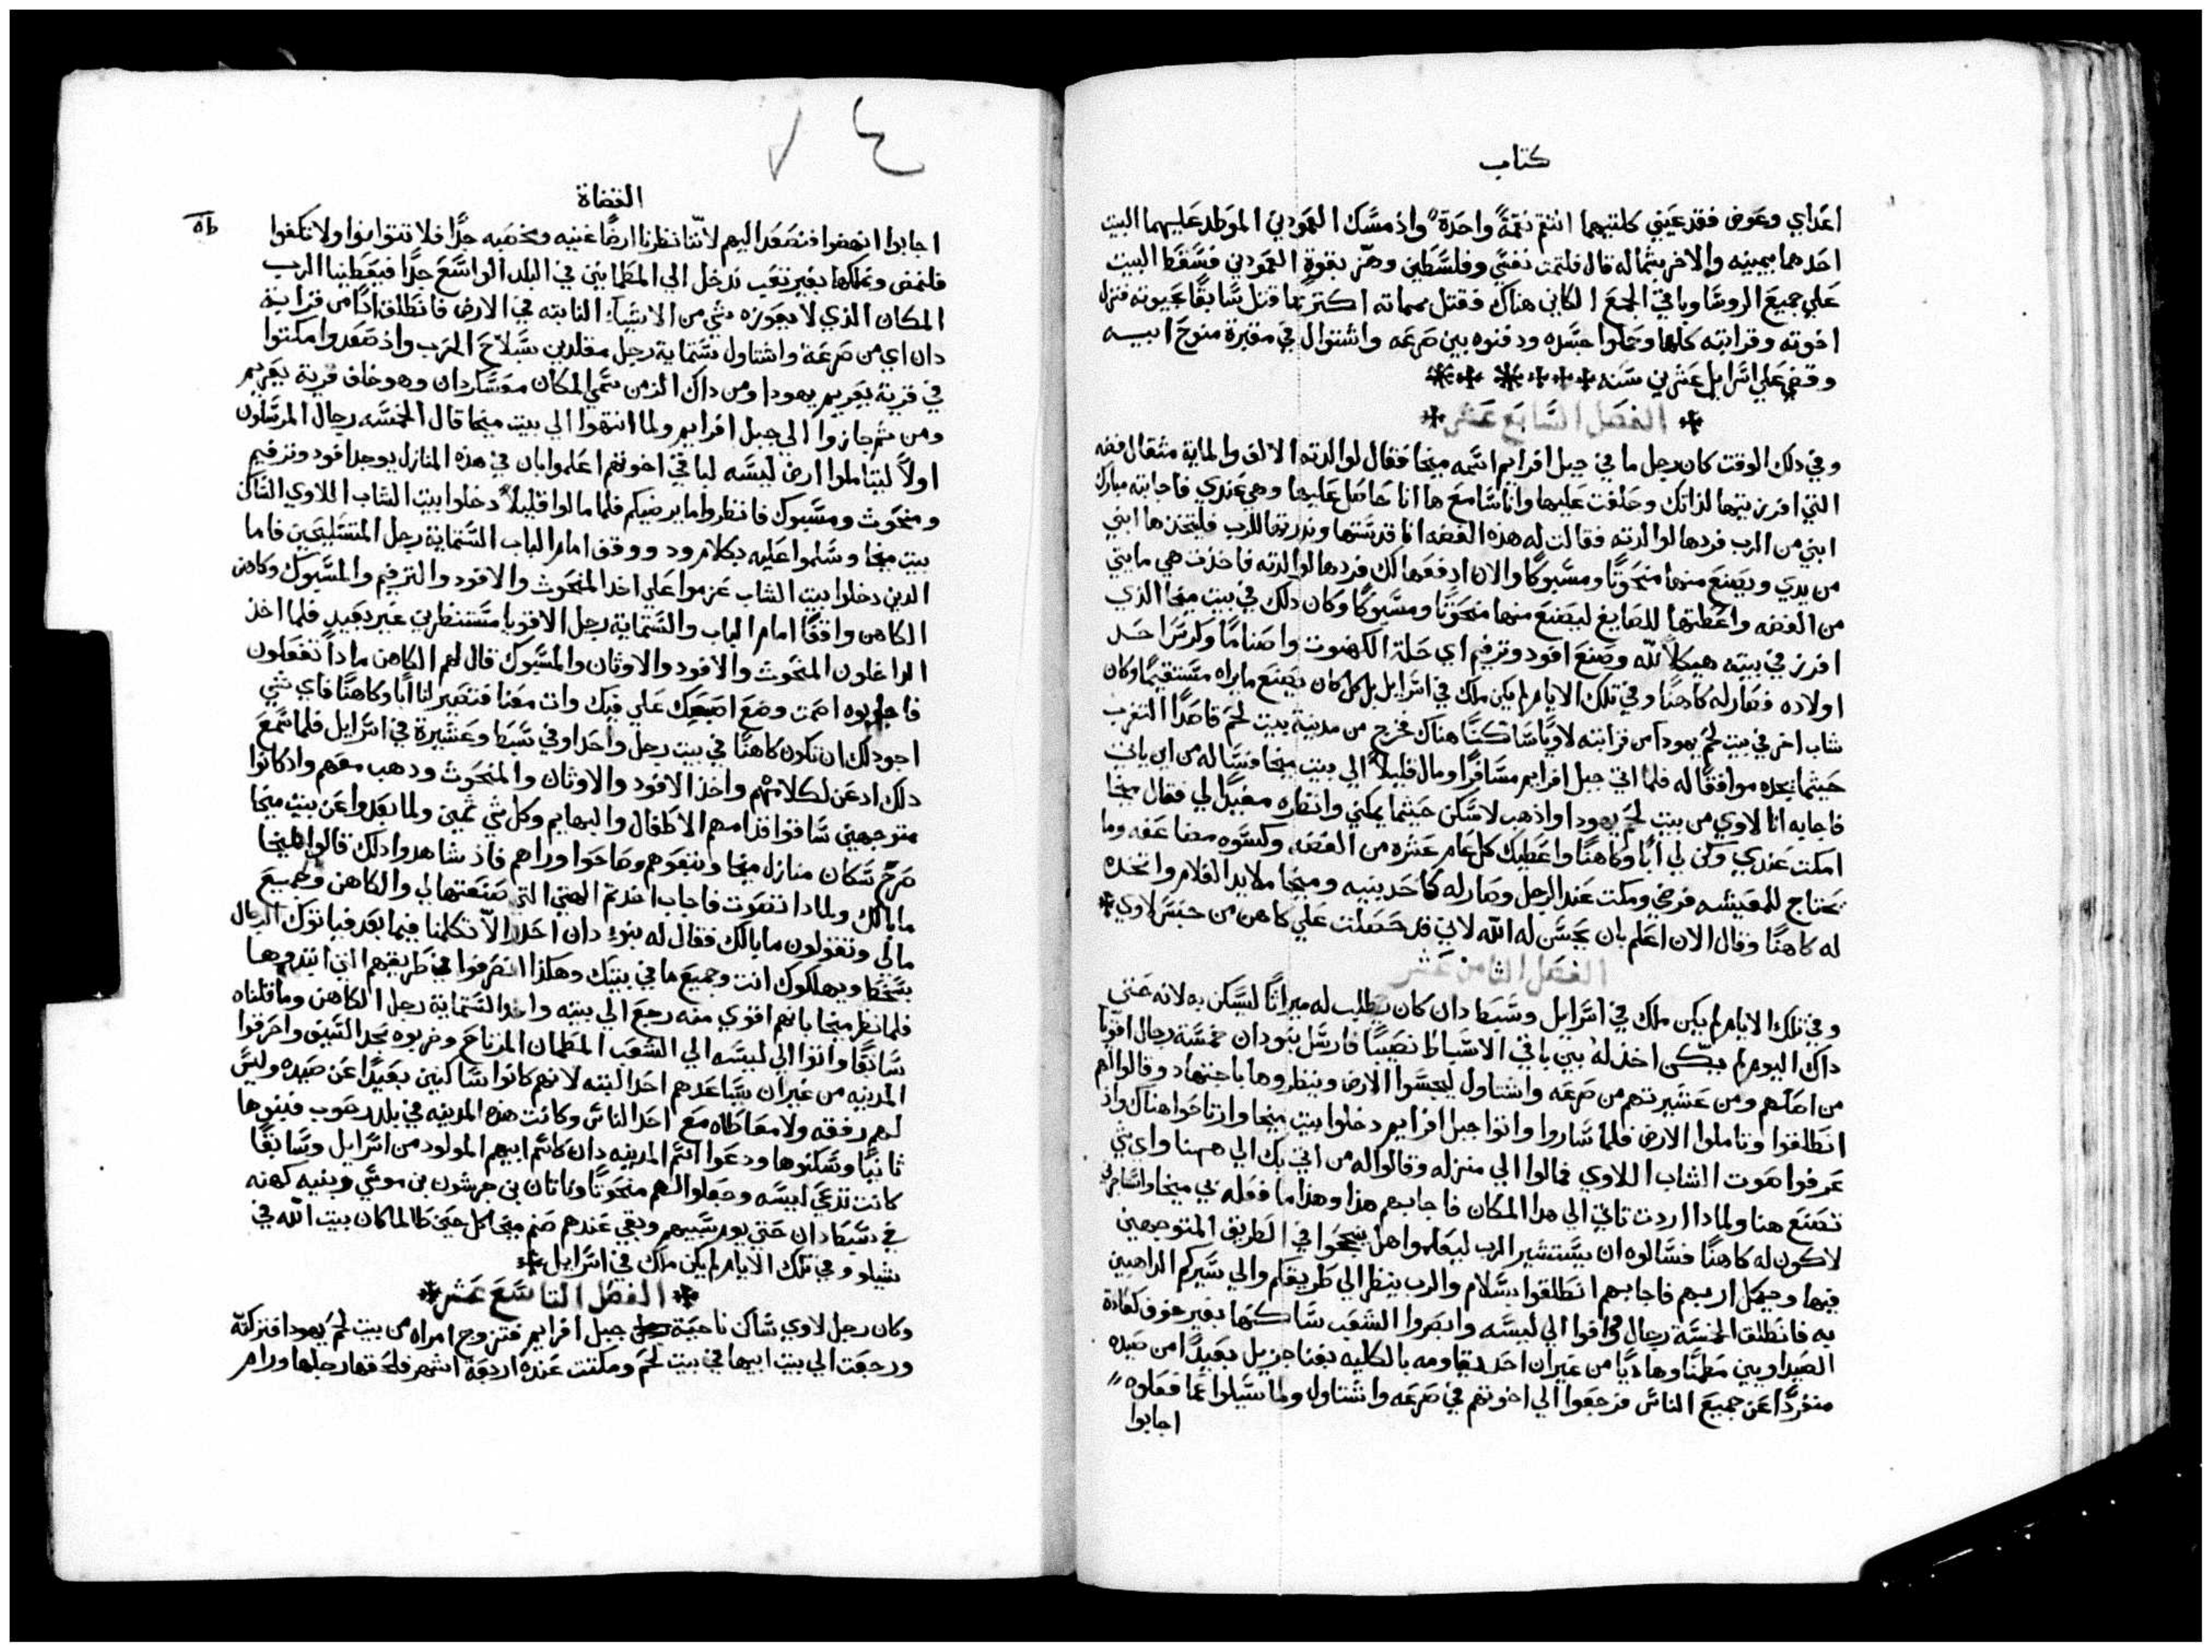 كتاب
اعداي وعوض فقد عيني كلتيهما انتقم نقمةً واحدة واذ مسك العمودين الموطد عليهما البيت
احدهما بيمينه والاخر بشماله قال فلتمت نفسي وفلسطين وهز بقوةٍ العمودين فسقط البيت
علي جميع الروسا وباقي الجمع الكاين هناك فقتل بمماته اكتر مما قتل سابقًا بحيوته فنزل
اخوته وقرابته كلها وحملوا جسده ودفنوه بين صرعه واشتوال في مقبرة منوح ابيه
وقضي علي اسرايل عشرين سنه
الفصل السابع عشر
وفي دلك الوقت كان رجل ما في جبل افرايم اسمه ميخا فقال لوالدته الالف والماية مثقال فضه
التي افرزتيها لداتك وحلفت عليها وانا سامع ها انا حاصل عليها وهي عندي فاجابته مبارك
ابني من الرب فردها لوالدته فقالت له هذه الفضه انا قدستها وندرتها للرب فليتخذها ابني
من يدي ويصنع منها منحوتًا ومسبوكًا والان ادفعها لك فردها لوالدته فاخذت هي مايتي
من الفضه واعطتها للصايغ ليصنع منها منحوتًا ومسبوكًا وكان دلك في بيت ميخا الذي
افرز في بيته هيكلاً لله وصنع افود وترفيم اي حلة الكهنوت واصنامًا وكرس احد
اولاده فصار له كاهنًا وفي تلك الايام لم يكن ملك في اسرايل بل كل كان يصنع مايراه مستقيمًا وكان
شاب اخر في بيت لحم يهودا من قرابته لاويًا ساكنًا هناك فخرج من مدينة بيت لحم قاصدًا التغرب
حيثما يجده موافقًا له فلما اتي جبل افرايم مسافرًا ومال قليلاً الي بيت ميخا فساله من اين ياتي
فاجابه انا لاوي من بيت لحم يهودا واذهب لاسكن حيثما يمكني وانظره مفيدًا لي فقال ميخا
امكت عندي وكن لي ابًا وكاهنًا واعطيك كل عام عشره من الفضه وكسوه مضاعفه وما
تحتاج للمعيشه فرضي ومكت عند الرجل وصار له كاحد بنيه وميخا ملا يد الغلام واتخذه
له كاهنًا وقال الان اعلم بان يحسن له الله لاني قد حصلت علي كاهن من جنس لاوي
الفصل الثامن عشر
وفي تلك الايام لم يكن ملك في اسرايل وسبط دان كان يطلب له ميراثًا ليسكن به لانه حتي
داك اليوم لم يكن اخذ له بين باقي الاسباط نصيبًا فارسل بنودان خمسة رجال اقويا
من اصلهم ومن عشيرتهم من صرعه واشتاول ليجسوا الارض وينظروها باجتهاد وقالوا لهم
انطلقوا وتاملوا الارض فلما ساروا واتوا جبل افرايم دخلوا بيت ميخا وارتاحوا هناك واذ
عرفوا صوت الشاب اللاوي فمالوا الي منزله وقالوا له من اتي بك الي ههنا واي شي
تصنع هنا ولمادا اردت تاتي الي هدا المكان فاجابهم هذا وهذا ما فعله بي ميخا واستاجرني
لاكون له كاهنًا فسالوه ان يستشير الرب ليعلموا هل ينجحوا في الطريق المتوجهين
فيها وحيكل اربهم فاجابهم انطلقوا بسلام والرب ينظر الي طريقكم والي سيركم الداهبين
به فانطلق الخمسة رجال فوافوا الي ليسه وابصروا الشعب ساكنها بغير خوف كعادة
الصيداويين مطمنًا وهاديًا من غير ان احد يقاومه بالكليه بغنا جزيل بعيدًا من صيده
منفردًا عن جميع الناس فرجعوا الي اخوتهم في صرعه واشتاول ولما سيلوا عما فعلوه
اجابوا
القضاة
اجابوا انهضوا فنصعد اليهم لاننا نظرنا ارضًا غنيه ومخصبه جدًا فلا تتوانوا ولا تكفوا
فلنمض ونملكها بغير تعب ندخل الي المطمانين في البلد الواسع جدًا فيعطينا الرب
المكان الذي لا يعوزه شي من الاشيآ النابته في الارض فانطلق ادًا من قرابة
دان اي من صرعة واشتاول ستماية رجل مقلدين بسلاح الحرب واذ صعدوا مكتوا
في قرية يعريم يهودا ومن داك الزمن سمي المكان معسكر دان وهو خلف قرية يعريم
ومن ثم جازوا الي جبل افرايم ولما انتهوا الي بيت ميخا قال الخمسه رجال المرسلون
اولاً ليتاملوا ارض ليسه لباقي اخوتهم اعلموا بان في هذه المنازل يوجد افود وترفيم
ومنحوت ومسبوك فانظروا ما يرضيكم فلما مالوا قليلاً دخلوا بيت الشاب اللاوي الساكن
بيت ميخا وسلموا عليه بكلام ود ووقف امام الباب الستماية رجل المتسلحين فاما
الدين دخلوا بيت الشاب عزموا علي اخد المنحوت والافود والترفيم والمسبوك وكاهن
الكاهن واقفًا امام الباب والستماية رجل الاقويا مستنظرين غير بعيد فلما اخد
الداخلون المنحوت والافود والاوثان والمسبوك قال لهم الكاهن مادا تفعلون
فاجابوه اصمت وضع اصبعك علي فيك وات معنا فتصير لنا ابًا وكاهنًا فاي شي
اجود لك ان تكون كاهنًا في بيت رجل واحد او في سبط وعشيرة في اسرايل فلما سمع
دلك ادعن لكلامهم واخذ الافود والاوثان والمنحوت ودهب معهم واذ كانوا
متوجهين ساقوا قدامهم الاطفال والبهايم وكل شي ثمين ولما بعدوا عن بيت ميخا
صرخ سكان منازل ميخا وتبعوهم وصاحوا وراهم فاذ شاهدوا دلك قالوا لميخا
مابالك ولمادا تصوت فاجاب اخدتم الهتي التي صنعتها لي والكاهن وجميع
مالي وتقولون مابالك فقال له بنو دان احدر الا تكلمنا فيما بعد فياتوك الرجال
بسخط ويهلكوك انت وجميع ما في بيتك وهكذا انصرفوا في طريقهم التي ابتدوها
فلما نظر ميخا بانهم اقوي منه رجع الي بيته واخد الستماية رجل الكاهن وما قلناه
سابقًا واتوا الي ليسه الي الشعب المطمان المرتاح وضربوه بحد السيف واحرقوا
المدينه من غير ان يساعدهم احد البته لانهم كانوا ساكنين بعيدًا عن صيده وليس
لهم رفقه ولا معاطاه مع احد الناس وكانت هذه المدينه في بلد رحوب فبنوها
ثانيًا وسكنوها ودعوا اسم المدينه دان كاسم ابيهم المولود من اسرايل وسابقًا
كانت تدعي ليسه وجعلوا لهم منحوتًا ويوناتان بن جرشون بن موسي وبنيه كهنه
في سبط دان حتي يوم سبيهم وبقي عندهم صنم ميخا كل حين طالما كان بيت الله في
شيلو وفي تلك الايام لم يكن ملك في اسرايل
الفصل التاسع عشر
وكان رجل لاوي ساكن ناحية جبل افرايم فتزوج امراه من بيت لحم يهودا فتركته
ورجعت الي بيت ابيها في بيت لحم ومكتت عنده اربعة اشهر فلحقها رجلها ورام